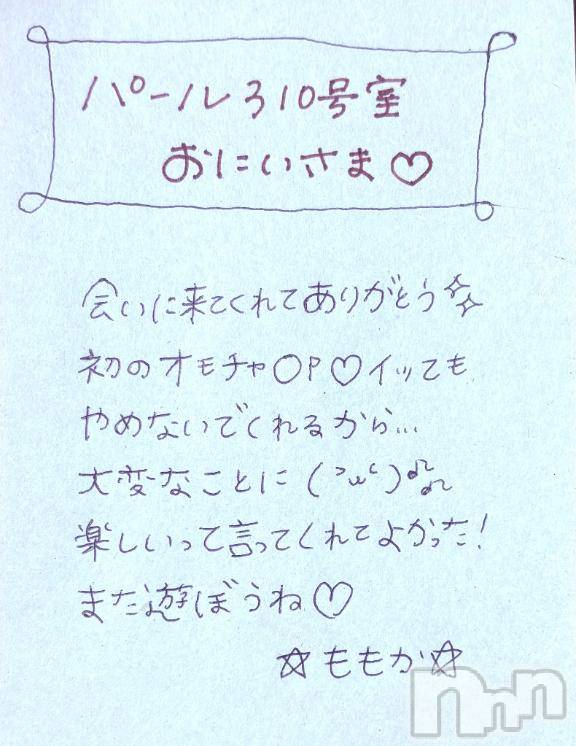 パール310号室
おにいさま♡
会いに来てくれてありがとう✨
初のオモチャ○P♡イッても
やめないでくれるから…
大変なことに(つω`)♪♪
楽しいって言ってくれてよかった!
また遊ぼうね♡
☆ももか☆
nnn